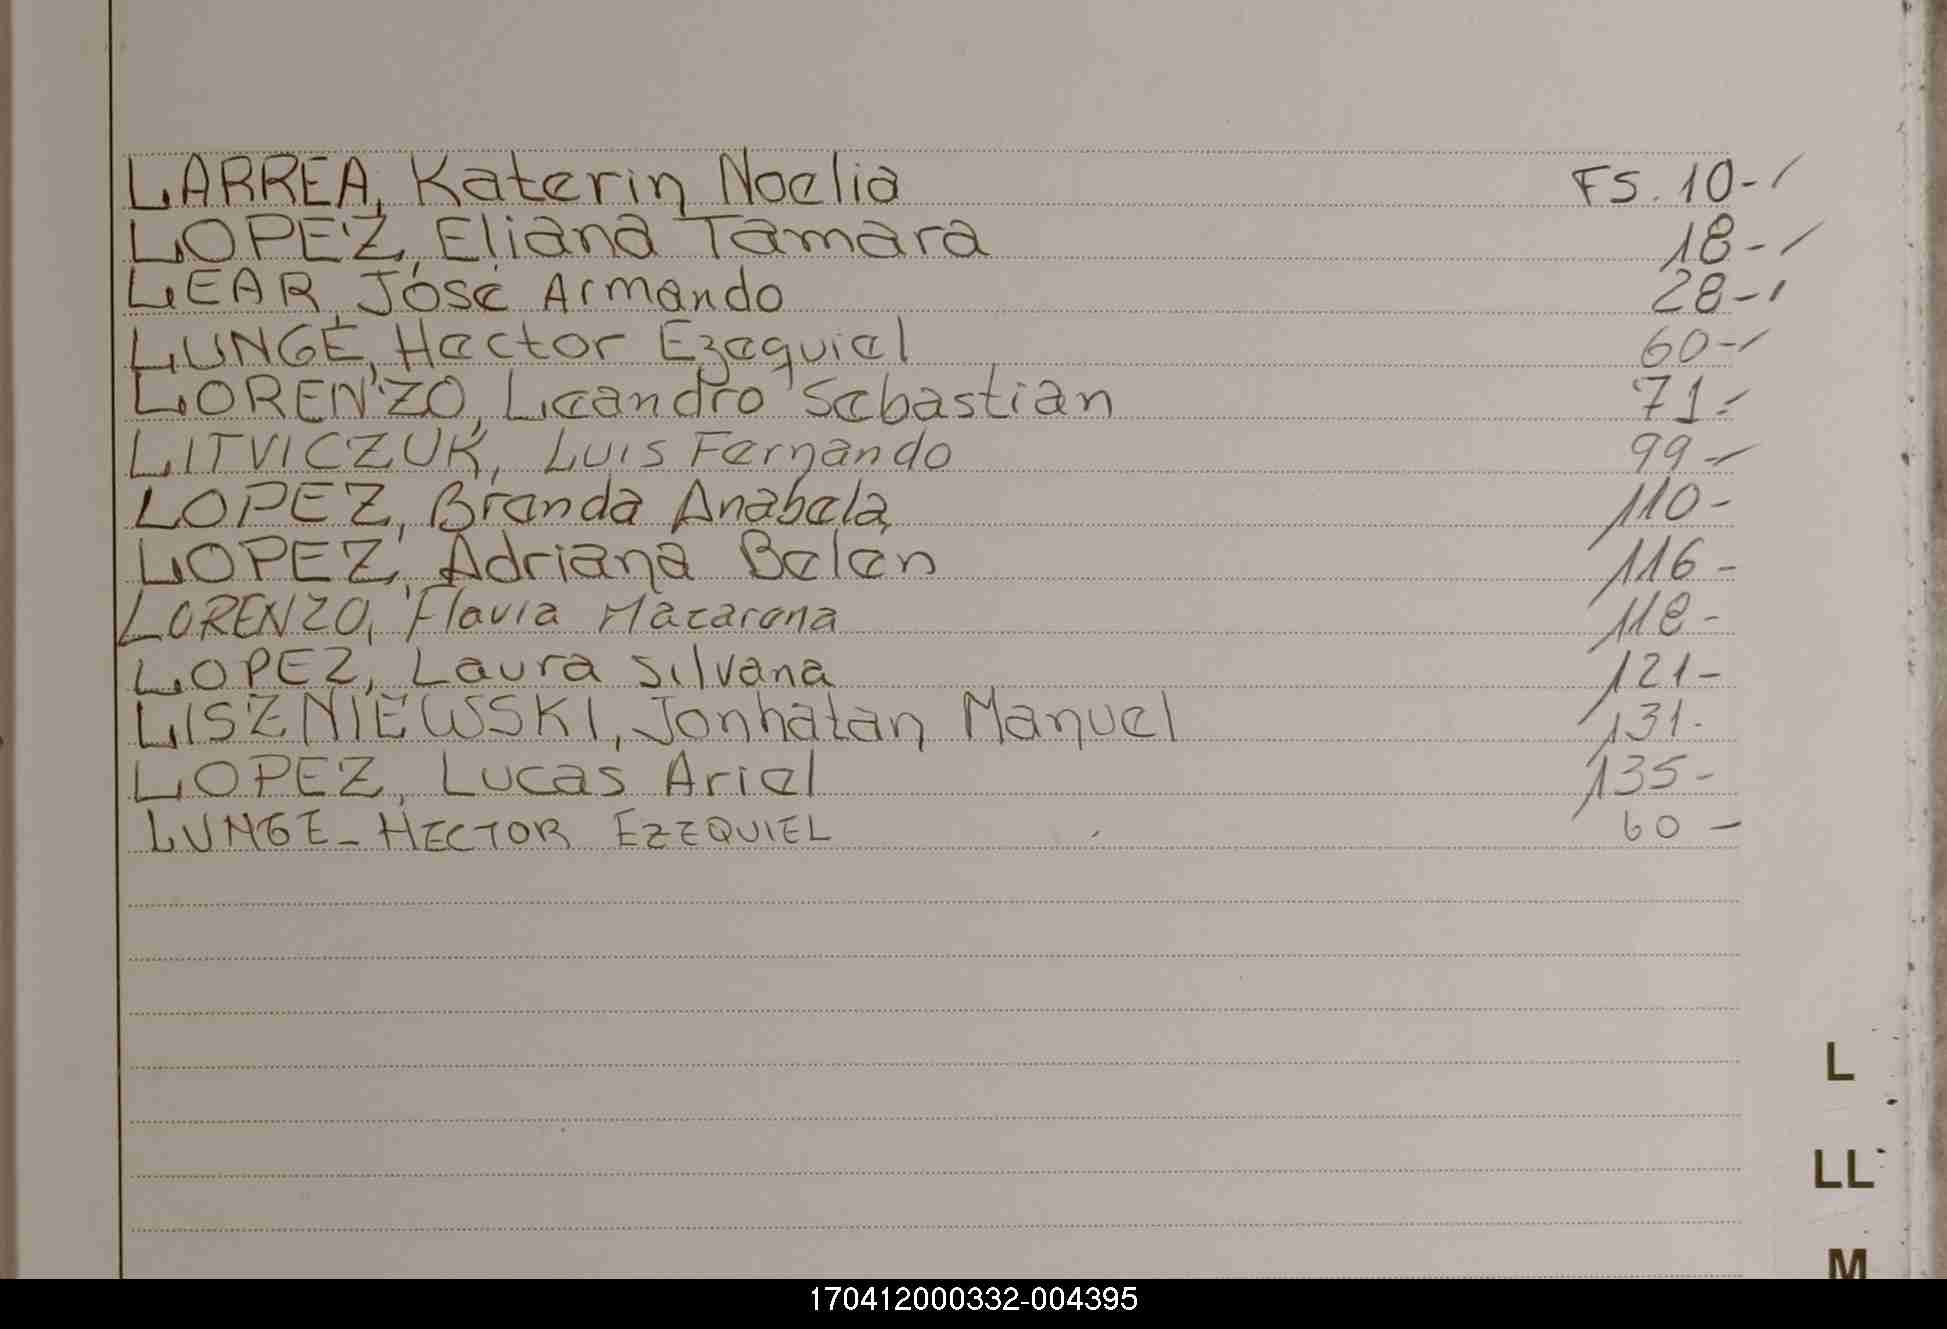 LARREA, Katerin Noelia FS. 10-
LOPEZ, Eliana Tamara 18-
LEAR, José Armando 28-
LUNGE, Hector Ezequiel 60-
LORENZO, Leandro Sebastian 71-
LITVICZUK, Luis Fernando 99-
LOPEZ, Brenda Anabela 110-
LOPEZ, Adriana Belen 116-
LORENZO, Flavia Macarena 118-
LOPEZ, Laura Silvana 121-
LISZNIEWSKI, Jonhatan Manuel 131-
LOPEZ, Lucas Ariel 135-
LUNGE- HECTOR EZEQUIEL 60-
L
LL
M
170412000332-004395